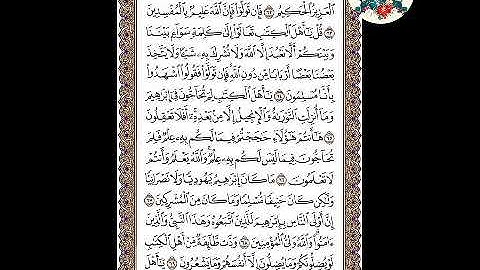 ٱلْعَزِيزُ ٱلْحَكِيمُ ٦٢ فَإِن تَوَلَّوْا۟ فَإِنَّ ٱللَّهَ عَلِيمٌۢ بِٱلْمُفْسِدِينَ
٦٣ قُلْ يَٰٓأَهْلَ ٱلْكِتَٰبِ تَعَالَوْا۟ إِلَىٰ كَلِمَةٍ سَوَآءٍۭ بَيْنَنَا
وَبَيْنَكُمْ أَلَّا نَعْبُدَ إِلَّا ٱللَّهَ وَلَا نُشْرِكَ بِهِۦ شَيْـًٔا وَلَا يَتَّخِذَ
بَعْضُنَا بَعْضًا أَرْبَابًا مِّن دُونِ ٱللَّهِ فَإِن تَوَلَّوْا۟ فَقُولُوا۟ ٱشْهَدُوا۟
بِأَنَّا مُسْلِمُونَ ٦٤ يَٰٓأَهْلَ ٱلْكِتَٰبِ لِمَ تُحَآجُّونَ فِىٓ إِبْرَٰهِيمَ
وَمَآ أُنزِلَتِ ٱلتَّوْرَىٰةُ وَٱلْإِنجِيلُ إِلَّا مِنۢ بَعْدِهِۦٓ أَفَلَا تَعْقِلُونَ
٦٥ هَٰٓأَنتُمْ هَٰٓؤُلَآءِ حَٰجَجْتُمْ فِيمَا لَكُم بِهِۦ عِلْمٌ فَلِمَ
تُحَآجُّونَ فِيمَا لَيْسَ لَكُم بِهِۦ عِلْمٌ وَٱللَّهُ يَعْلَمُ وَأَنتُمْ
لَا تَعْلَمُونَ ٦٦ مَا كَانَ إِبْرَٰهِيمُ يَهُودِيًّا وَلَا نَصْرَانِيًّا
وَلَٰكِن كَانَ حَنِيفًا مُّسْلِمًا وَمَا كَانَ مِنَ ٱلْمُشْرِكِينَ ٦٧
إِنَّ أَوْلَى ٱلنَّاسِ بِإِبْرَٰهِيمَ لَلَّذِينَ ٱتَّبَعُوهُ وَهَٰذَا ٱلنَّبِىُّ وَٱلَّذِينَ
ءَامَنُوا۟ وَٱللَّهُ وَلِىُّ ٱلْمُؤْمِنِينَ ٦٨ وَدَّت طَّآئِفَةٌ مِّنْ أَهْلِ ٱلْكِتَٰبِ
لَوْ يُضِلُّونَكُمْ وَمَا يُضِلُّونَ إِلَّآ أَنفُسَهُمْ وَمَا يَشْعُرُونَ ٦٩ يَٰٓأَهْلَ